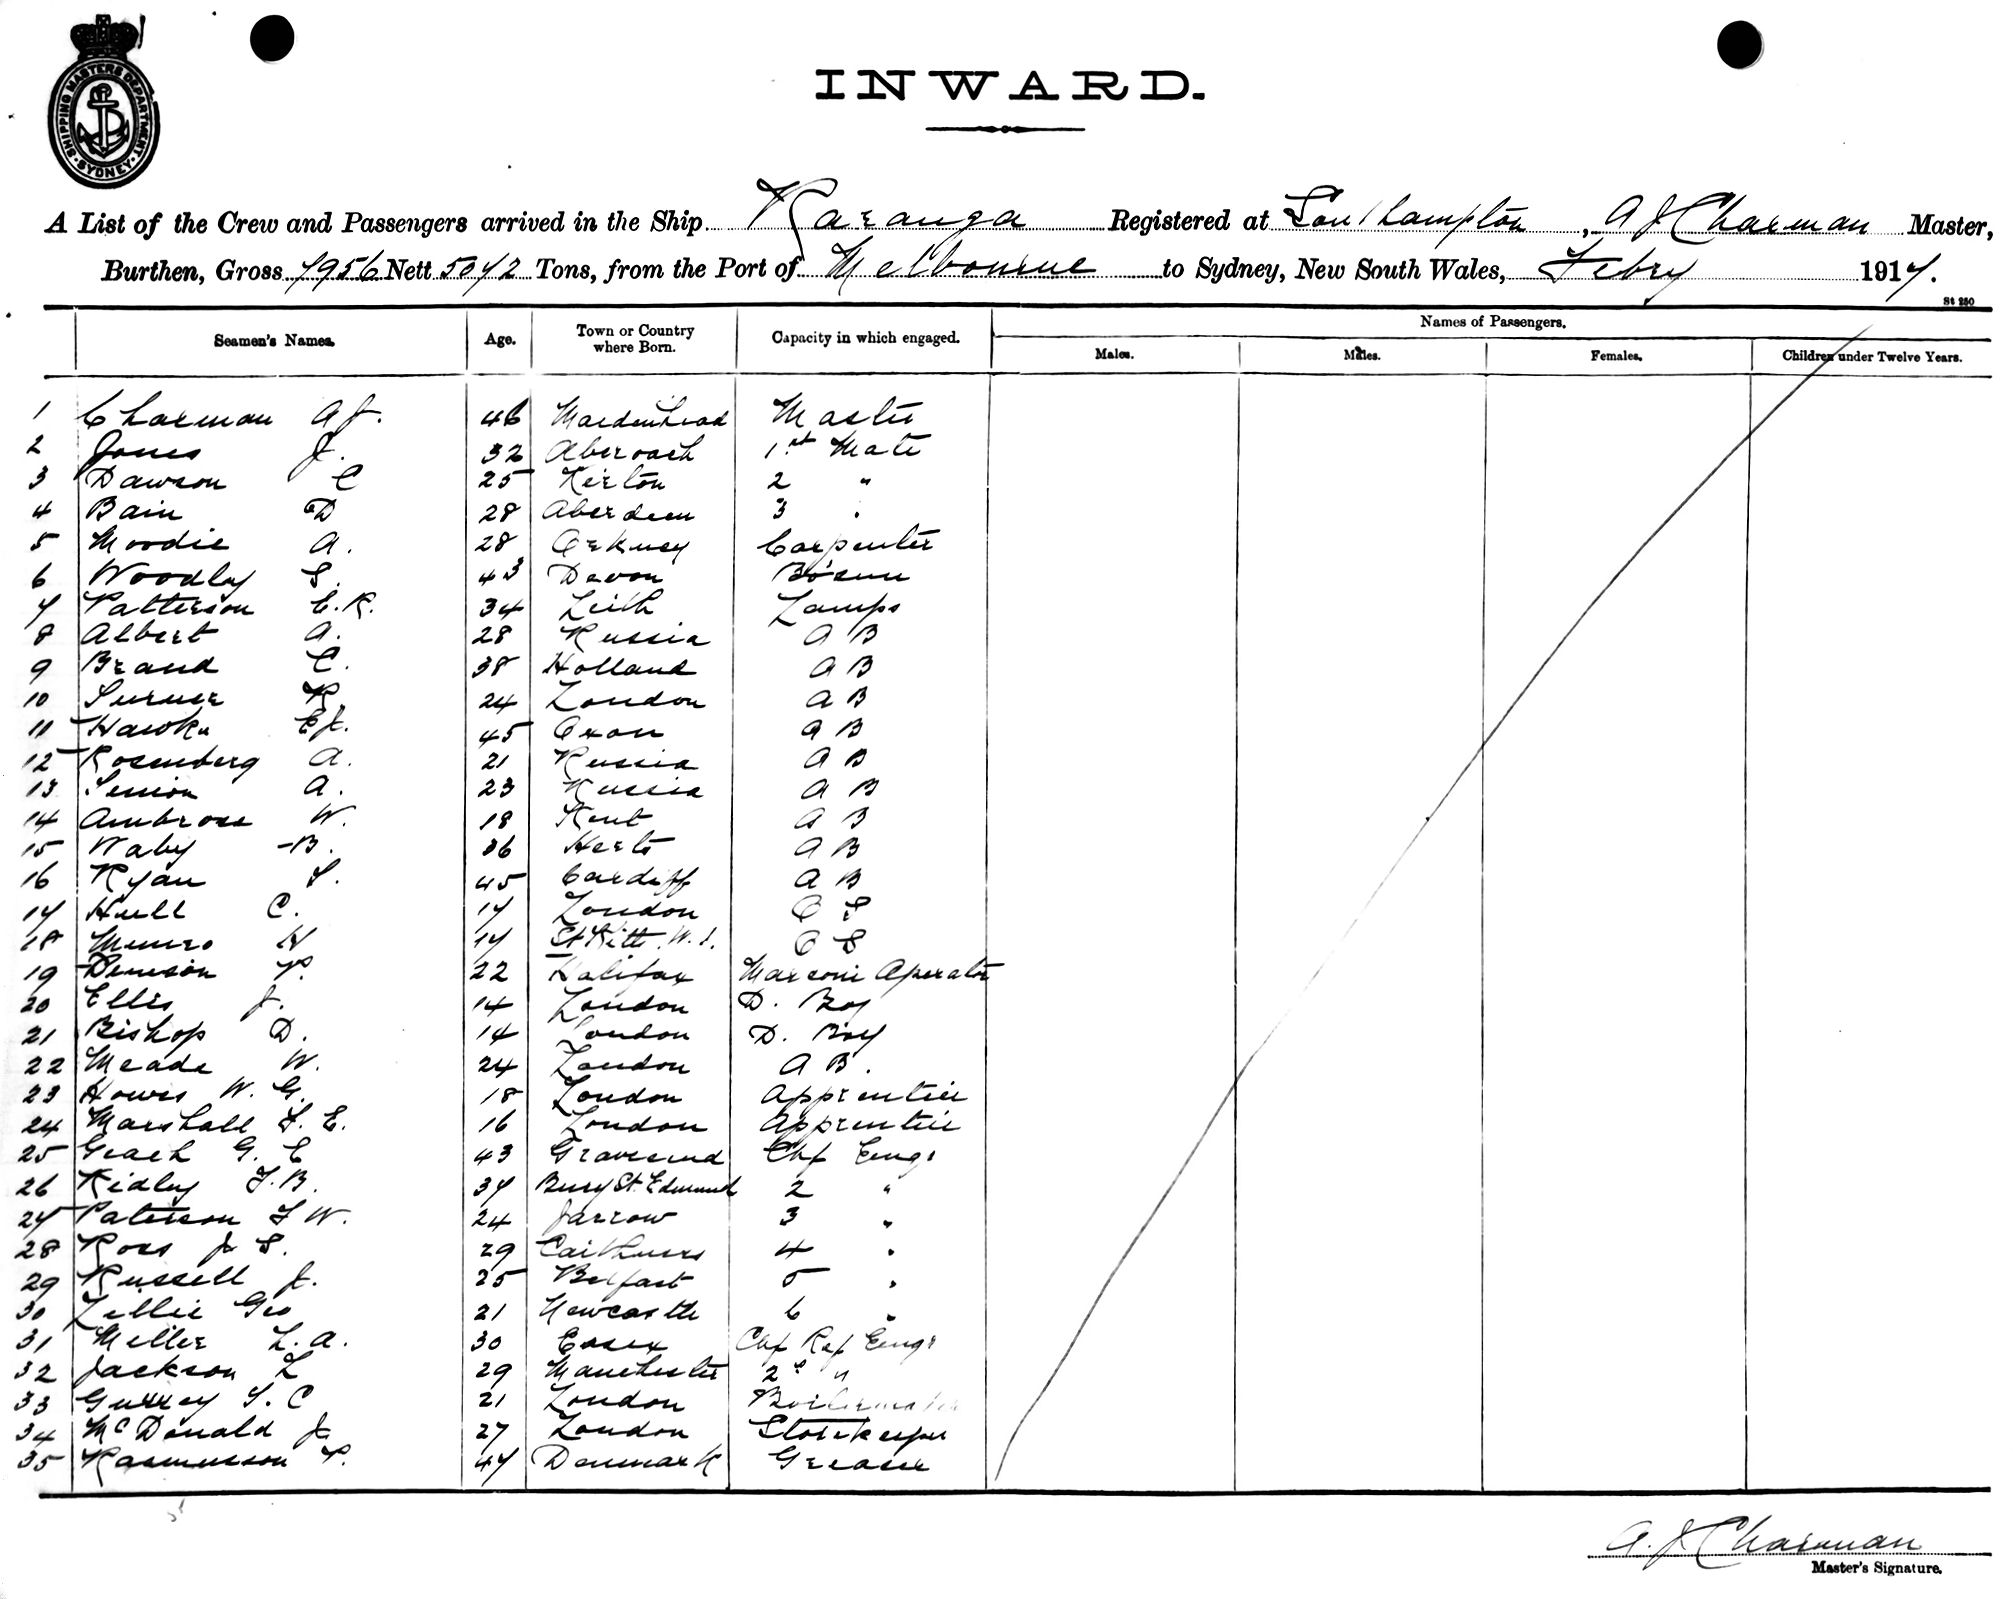 SHIPPING MASTERS DEPARTMENT
SYDNEY
INWARD.
A List of the Crew and Passengers arrived in the Ship Karanga Registered at Southampton, A J Charman Master,
Burthen, Gross 7956 Nett 5042 Tons, from the Port of Melbourne to Sydney, New South Wales, Febry 1917.
St 250
Seamen's Names. Age. Town or Country where Born. Capacity in which engaged. Names of Passengers.
Males. Males. Females. Children under Twelve Years.
1 Charman A J. 46 Maidenhead Master
2 Jones J. 32 Abersoch 1st Mate
3 Dawson C 25 Kirton 2 "
4 Bain D 28 Aberdeen 3 "
5 Moodie A. 28 Orkney Carpenter
6 Woodley S. 43 Devon Bo'sun
7 Patterson C.R. 34 Leith Lamps
8 Albert A. 28 Russia A B
9 Brand C. 38 Holland A B
10 Turner R. 24 London A B
11 Hawke E J. 45 Oxon A B
12 Rosenberg A. 21 Russia A B
13 A. 23 Russia A B
14 Ambrose W. 18 Kent A B
15 Waby B. 36 Herts A B
16 Ryan T. 45 Cardiff A B
17 Hull C. 17 London O S
18 Munro H 17 St Kitts W.I. O S
19 Denison P. 22 Halifax Marconi Operator
20 Ellis J. 17 London D. Boy
21 Bishop D. 17 London D. Boy
22 Meade W. 24 London A B.
23 Howes W. G. 18 London Apprentice
24 Marshall F. E. 16 London Apprentice
25 Geach G. C 43 Gravesend Chf Engr
26 Ridley F.B. 37 Bury St. Edmunds 2 "
27 Paterson T W. 24 Jarrow 3 "
28 Ross J S. 29 Caithness 4 "
29 Russell J. 25 Belfast 5 "
30 Lillie Geo 21 Newcastle 6 "
31 Miller L. A. 30 Essex Chf Ref Engr
32 Jackson L 29 Manchester 2nd "
33 Gurrey S. C 21 London Boilermaker
34 McDonald J 27 London Storekeeper
35 Rasmusson P. 47 Denmark Greaser
A. J Charman
Master's Signature.